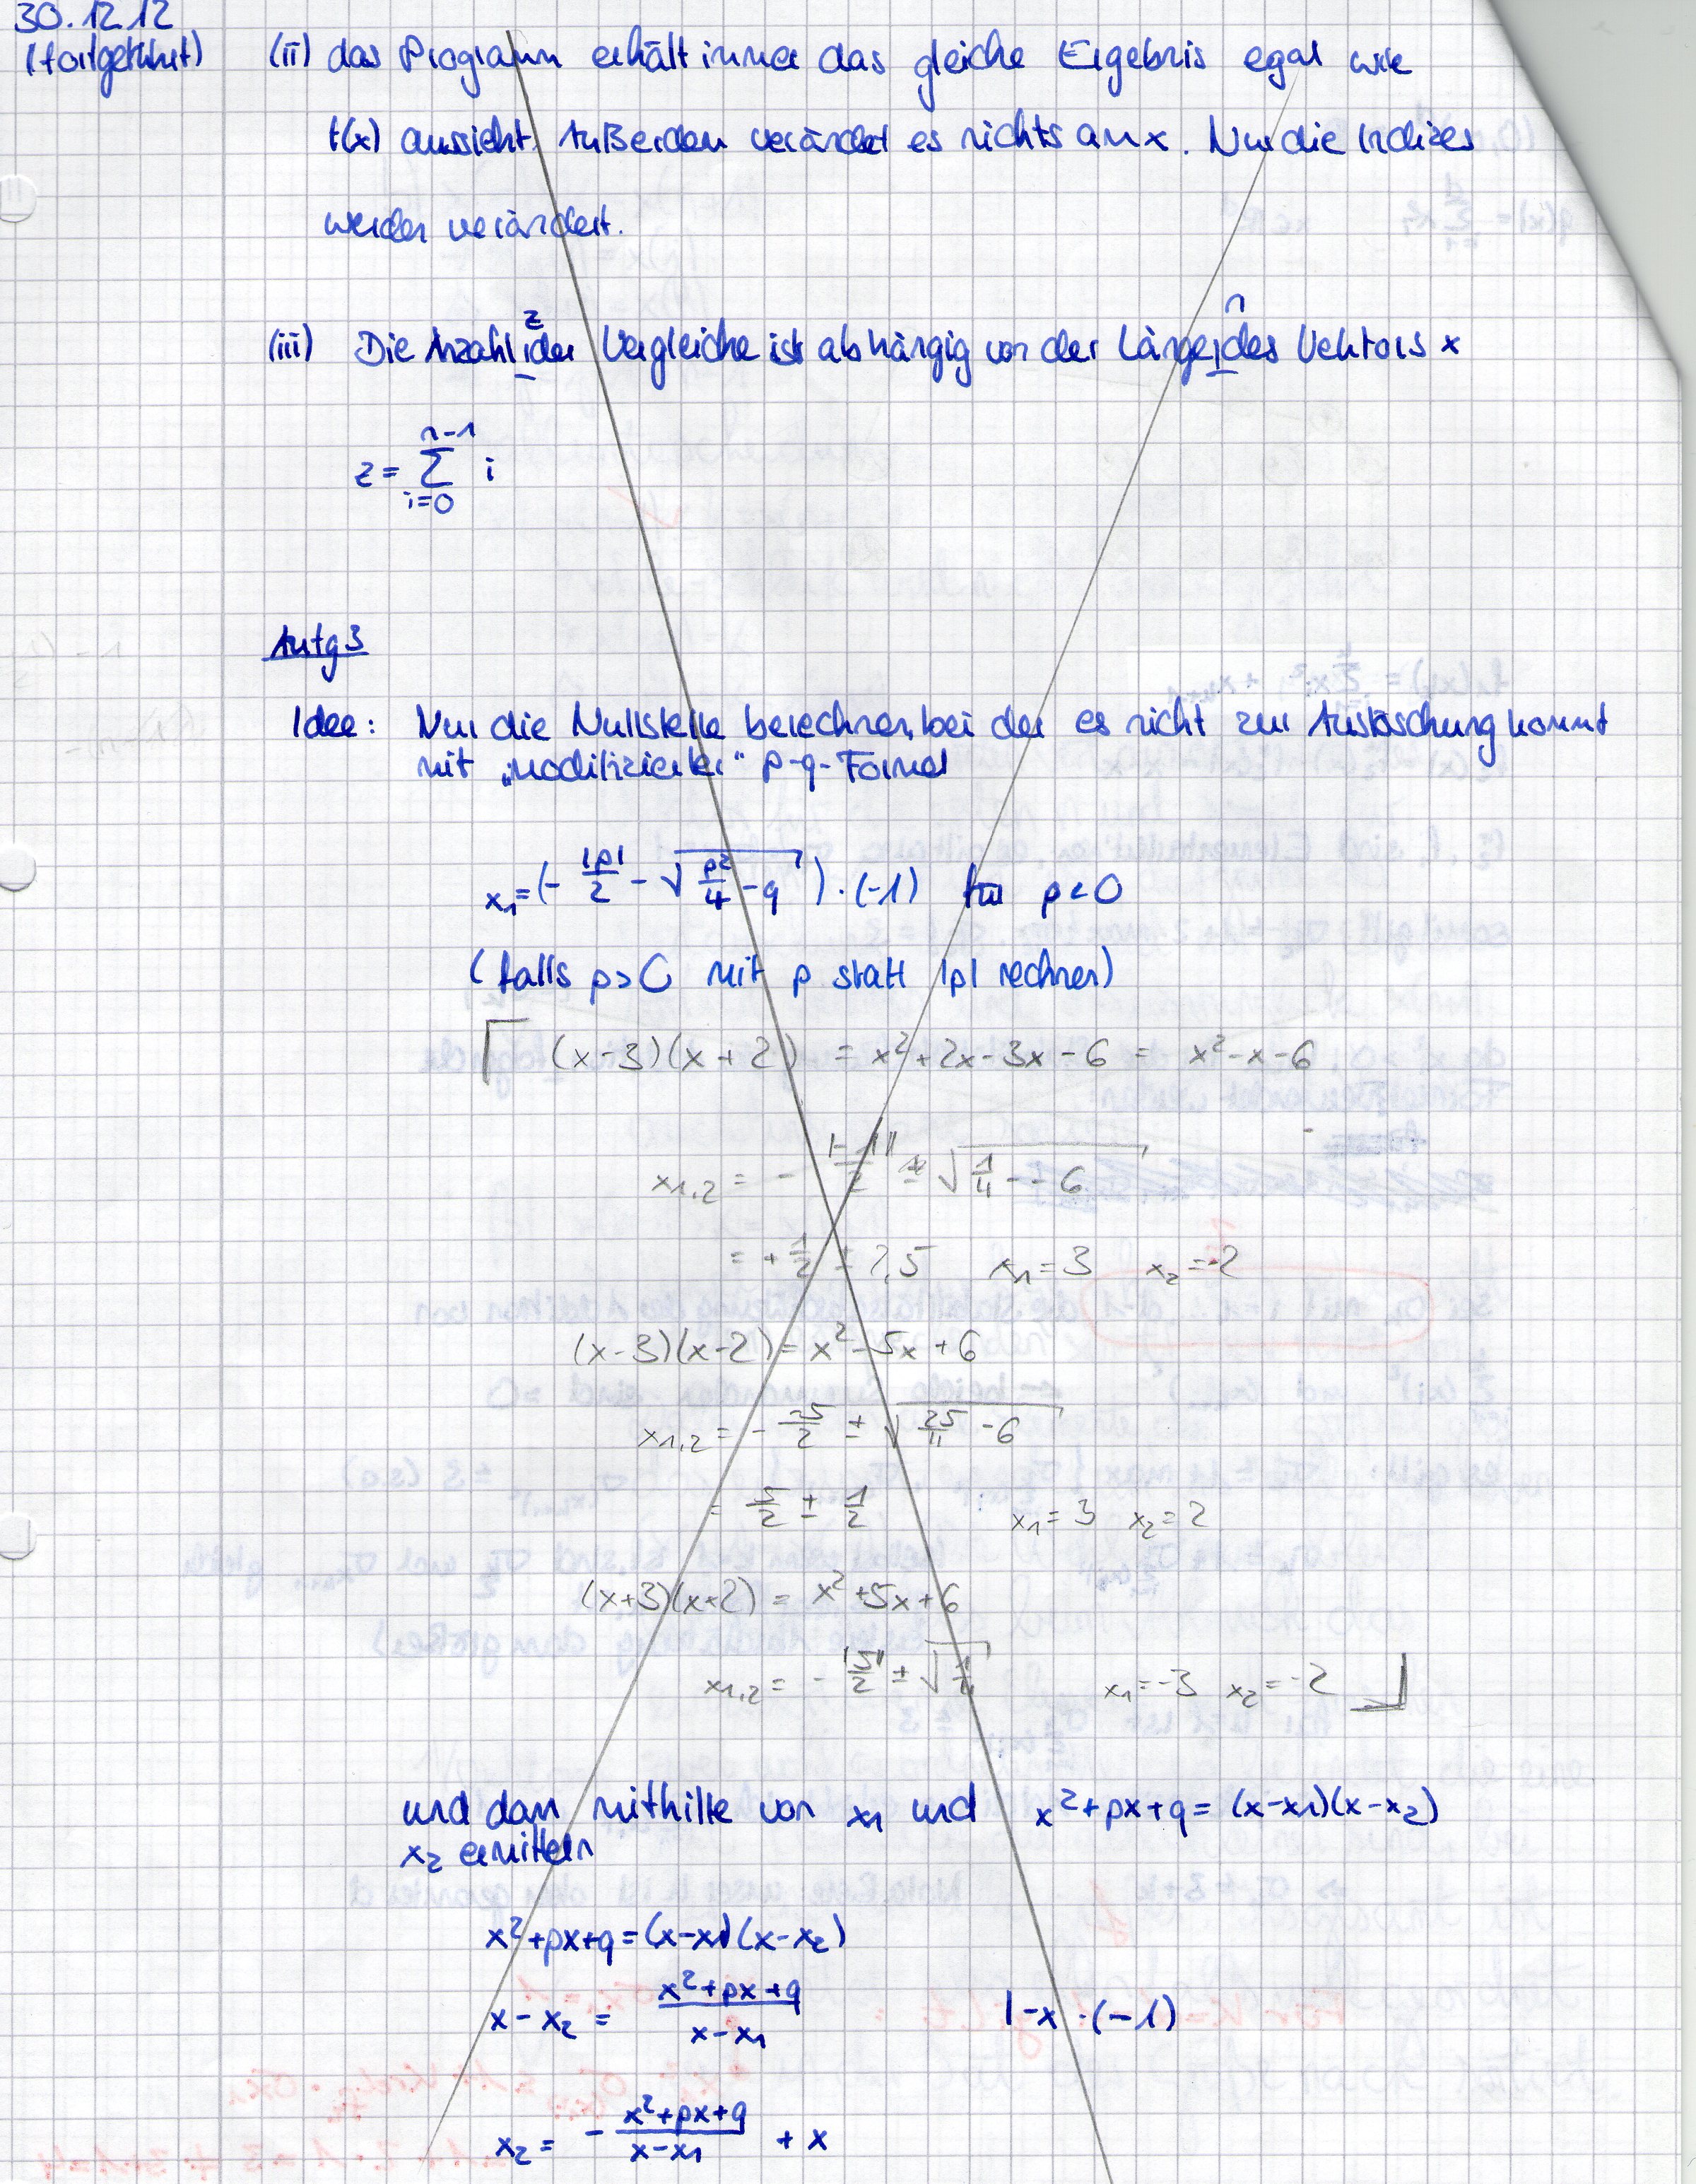 30.12.12
(fortgeführt) (ii) das Programm erhält immer das gleiche Ergebnis egal wie
t(x) aussieht. Außerdem verändert es nichts an x. Nur die Indizes
werden verändert.
(iii) Die Anzahl z der Vergleiche ist abhängig von der Länge n des Vektors x
z = ∑_{i=0}^{n-1} i
Aufg 3
Idee: Nur die Nullstelle berechnen, bei der es nicht zur Auslöschung kommt
mit „modifizierter“ p-q-Formel
x₁ = (- |p|/2 - √(p²/4 - q)) · (-1) für p < 0
(falls p > 0 mit p statt |p| rechnen)
(x-3)(x+2) = x²+2x-3x-6 = x²-x-6
x₁,₂ = - "-1"/2 ± √(1/4 - -6)
= + 1/2 ± 2,5 x₁ = 3 x₂ = -2
(x-3)(x-2) = x²-5x+6
x₁,₂ = - -5/2 ± √(25/4 - 6)
= 5/2 ± 1/2 x₁ = 3 x₂ = 2
(x+3)(x+2) = x²+5x+6
x₁,₂ = - "5"/2 ± √(1/4) x₁ = -3 x₂ = -2
und dann mithilfe von x₁ und x²+px+q = (x-x₁)(x-x₂)
x₂ ermitteln
x²+px+q = (x-x₁)(x-x₂)
x-x₂ = (x²+px+q)/(x-x₁) |-x ·(-1)
x₂ = - (x²+px+q)/(x-x₁) + x